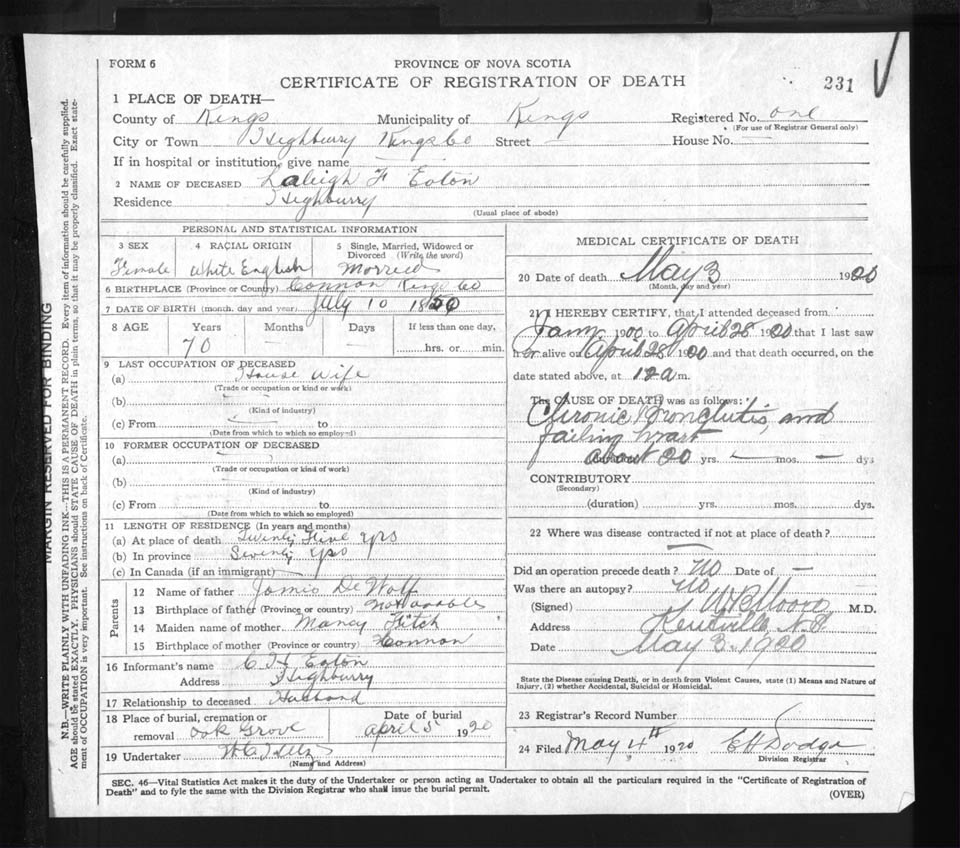 FORM 6
PROVINCE OF NOVA SCOTIA
CERTIFICATE OF REGISTRATION OF DEATH
231
1 PLACE OF DEATH—
County of Kings Municipality of Kings Registered No. one
(For use of Registrar General only)
City or Town Highbury Kings Co Street — House No. —
If in hospital or institution, give name —
2 NAME OF DECEASED Laleigh F Eaton
Residence Highburry
(Usual place of abode)
PERSONAL AND STATISTICAL INFORMATION
3 SEX 4 RACIAL ORIGIN 5 Single, Married, Widowed or Divorced (Write the word)
Female White English Morried
6 BIRTHPLACE (Province or Country) Connon Kings Co
7 DATE OF BIRTH (month, day and year) July 10 1850
8 AGE Years Months Days If less than one day,
70 hrs. or min.
9 LAST OCCUPATION OF DECEASED
(a) House Wife
(Trade or occupation or kind of work)
(b)
(Kind of industry)
(c) From —
(Date from which to which so employed)
10 FORMER OCCUPATION OF DECEASED
(a)
(Trade or occupation or kind of work)
(b)
(Kind of industry)
(c) From
(Date from which to which so employed)
11 LENGTH OF RESIDENCE (In years and months)
(a) At place of death Twenty Five yrs
(b) In province Seventy yrs
(c) In Canada (if an immigrant) —
Parents
12 Name of father James De Wolf
13 Birthplace of father (Province or country)
14 Maiden name of mother Nancy Fitch
15 Birthplace of mother (Province or country) Connon
16 Informant's name C H Eaton
Address Highburry
17 Relationship to deceased Husband
18 Place of burial, cremation or removal Oak Grove
Date of burial April 5 1920
19 Undertaker
(Name and Address)
MEDICAL CERTIFICATE OF DEATH
20 Date of death May 3 1920
(Month, day and year)
21 I HEREBY CERTIFY, that I attended deceased from
Jany 1900 to April 28 1920 that I last saw
her alive on April 28 1920 and that death occurred, on the
date stated above, at 12 a m.
The CAUSE OF DEATH was as follows:
Chronic Bronchitis, and
failing heart
(duration) about 20 yrs. — mos. — dys
CONTRIBUTORY
(Secondary)
(duration) yrs. mos. dys.
22 Where was disease contracted if not at place of death?
—
Did an operation precede death? No Date of —
Was there an autopsy? No
(Signed) W B Moore M.D.
Address Kentville N.S
Date May 3. 1920
State the Disease causing Death, or in death from Violent Causes, state (1) Means and Nature of
Injury, (2) whether Accidental, Suicidal or Homicidal.
23 Registrar's Record Number
24 Filed May 4th 1920 E H Dodge
Division Registrar
SEC. 46—Vital Statistics Act makes it the duty of the Undertaker or person acting as Undertaker to obtain all the particulars required in the "Certificate of Registration of
Death" and to fyle the same with the Division Registrar who shall issue the burial permit.
(OVER)
MARGIN RESERVED FOR BINDING
N.B.—WRITE PLAINLY WITH UNFADING INK—THIS IS A PERMANENT RECORD. Every item of information should be carefully supplied.
AGE should be stated EXACTLY. PHYSICIANS should STATE CAUSE OF DEATH in plain terms, so that it may be properly classified. Exact state-
ment of OCCUPATION is very important. See instructions on back of Certificate.